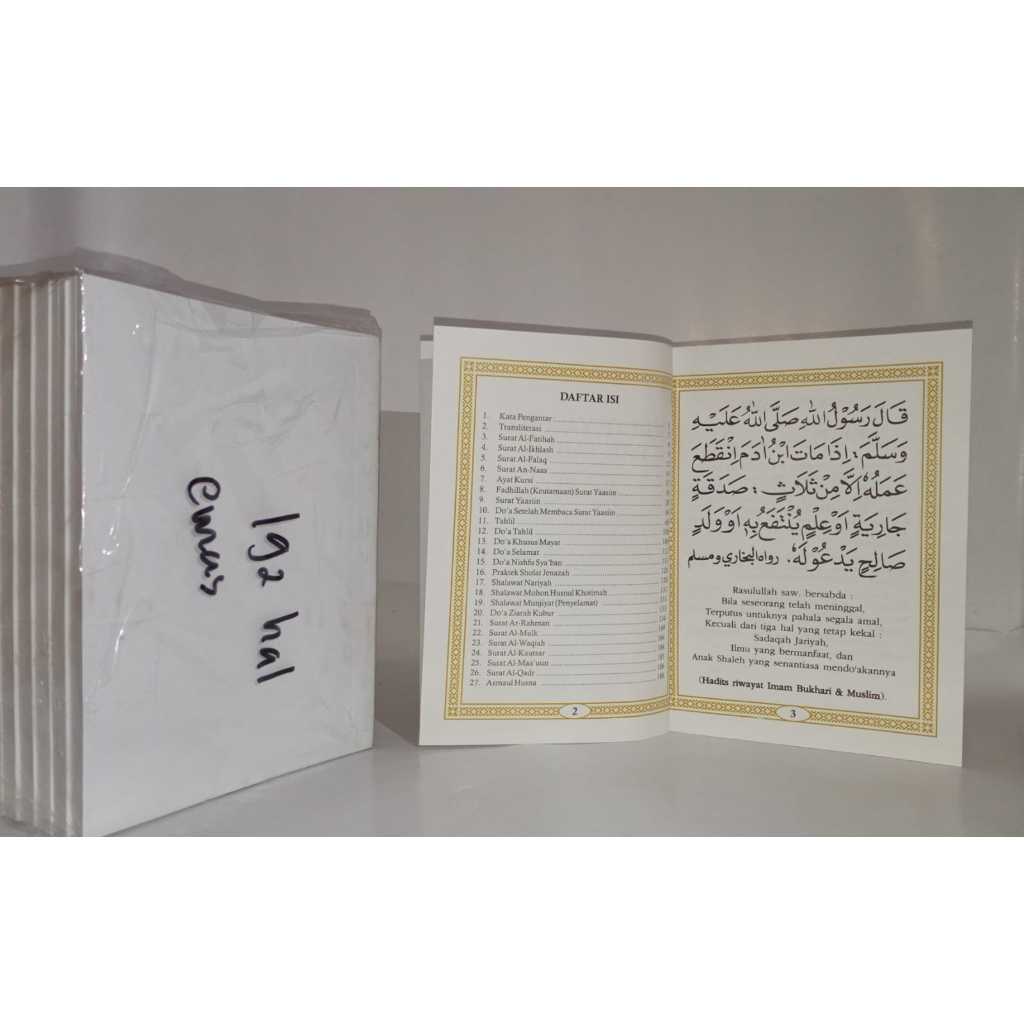 192 hal
emas
DAFTAR ISI
1. Kata Pengantar
2. Transliterasi
3. Surat Al-Fatihah
4. Surat Al-Ikhlash
5. Surat Al-Falaq
6. Surat An-Naas
7. Ayat Kursi
8. Fadhillah (Keutamaan) Surat Yaasiin
9. Surat Yaasiin
10. Do'a Setelah Membaca Surat Yaasiin
11. Tahlil
12. Do'a Tahlil
13. Do'a Khusus Mayat
14. Do'a Selamat
15. Do'a Nishfu Sya'ban
16. Praktek Sholat Jenazah
17. Shalawat Nariyah
18. Shalawat Mohon Husnul Khotimah
19. Shalawat Munjiyat (Penyelamat)
20. Do'a Ziarah Kubur
21. Surat Ar-Rahman
22. Surat Al-Mulk
23. Surat Al-Waqiah
24. Surat Al-Kautsar
25. Surat Al-Maa'uun
26. Surat Al-Qadr
27. Asmaul Husna
2
قَالَ رَسُوْلُ اللهِ صَلَّى اللهُ عَلَيْهِ
وَسَلَّمَ : اِذَا مَاتَ ابْنُ اٰدَمَ اِنْقَطَعَ
عَمَلُهٗ اِلَّا مِنْ ثَلَاثٍ : صَدَقَةٍ
جَارِيَةٍ اَوْ عِلْمٍ يُنْتَفَعُ بِهٖ اَوْ وَلَدٍ
صَالِحٍ يَدْعُوْ لَهٗ. رواه البخاري ومسلم
Rasulullah saw. bersabda :
Bila seseorang telah meninggal,
Terputus untuknya pahala segala amal,
Kecuali dari tiga hal yang tetap kekal :
Sadaqah Jariyah,
Ilmu yang bermanfaat, dan
Anak Shaleh yang senantiasa mendo'akannya
(Hadits riwayat Imam Bukhari & Muslim).
3